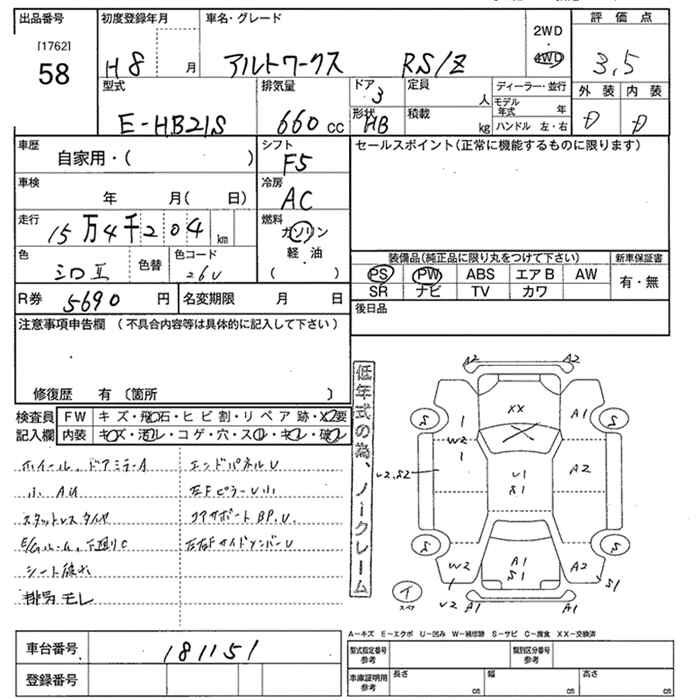 出品番号 初度登録年月 車名・グレード 2WD 評価点
[1762] 4WD
58 H8 月 アルトワークス RS/Z 3,5
型式 排気量 ドア 定員 ディーラー・並行 外装 内装
3 人 モデル年式 年
E-HB21S 660 cc 形状 HB 積載 kg ハンドル 左・右 D D
車歴 シフト セールスポイント(正常に機能するものに限ります)
自家用・( ) F5
車検 冷房
年 月( 日) AC
走行 燃料
15万4千204 km ガソリン
色 色替 色コード 軽・油 装備品(純正品に限り丸をつけて下さい) 新車保証書
シロⅡ 26U ( ) PS PW ABS エアB AW 有・無
R券 5690 円 名変期限 月 日 SR ナビ TV カワ
注意事項申告欄 (不具合内容等は具体的に記入して下さい) 後日品
修復歴 有 〔箇所 〕
検査員 FW キズ・飛石・ヒビ割・リペア跡・X要
記入欄 内装 キズ・汚レ・コゲ・穴・スレ・キレ・破レ
低年式の為、ノークレーム
ホイール、ドアミラーA エンドパネルU
小AU 左FピラーU小
スタットレスタイヤ コアサポートBP.U.
E/gルーム、下廻りC 左右FサイドメンバーU
シート破れ
排気モレ
A2 A2
XX
S 1 A1 S
W2
1
U2.S2 U1 A2
S1
S W2 A1 A2 S
1 S1 S1
イ スペア U2 A1 A1
A−キズ E−エクボ U−凹み W−補修跡 S−サビ C−腐食 XX−交換済
車台番号 181151 型式指定番号 参考 類別区分番号 参考
登録番号 車庫証明用 参考 長さ ㎝ 幅 ㎝ 高さ ㎝